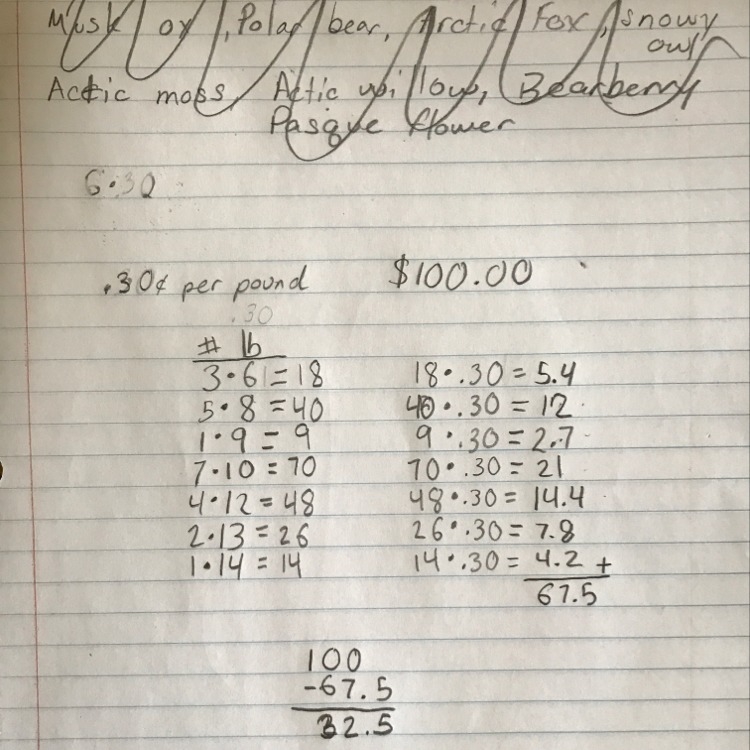 Musk ox, Polar bear, Arctic Fox, snowy
owl
Arctic moss, Artic willow, Bearberry
Pasque flower
6·30
.30¢ per pound $100.00
.30
# lb
3·6=18 18·.30=5.4
5·8=40 40·.30=12
1·9=9 9·.30=2.7
7·10=70 70·.30=21
4·12=48 48·.30=14.4
2·13=26 26·.30=7.8
1·14=14 14·.30=4.2+
67.5
100
-67.5
32.5